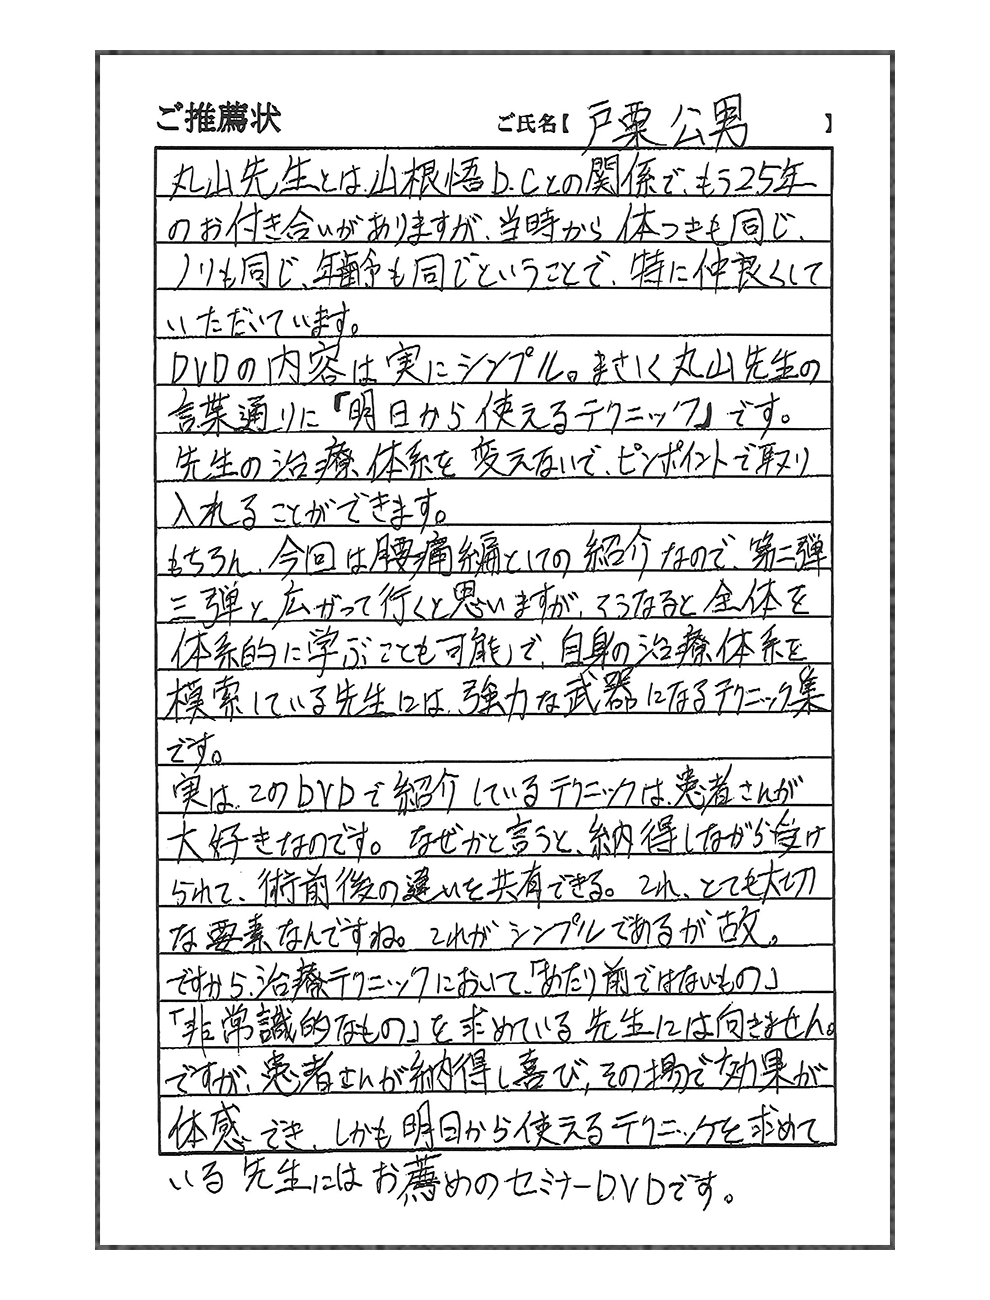 ご推薦状 ご氏名【 戸栗 公男 】
丸山先生とは、山根悟D.Cとの関係で、もう25年
のお付き合いがありますが、当時から 体つきも同じ、
ノリも同じ、年齢も同じということで、特に仲良くして
いただいています。
DVDの内容は実にシンプル。まさしく丸山先生の
言葉通りに『明日から使えるテクニック』です。
先生の治療体系を変えないで、ピンポイントで取り
入れることができます。
もちろん、今回は腰痛編としての紹介なので、第二弾
三弾と広がって行くと思いますが、そうなると全体を
体系的に学ぶことも可能で、自身の治療体系を
模索している先生には、強力な武器になるテクニック集
です。
実は、このDVDで紹介しているテクニックは、患者さんが
大好きなのです。なぜかと言うと、納得しながら受け
られて、術前後の違いを共有できる。これ、とても大切
な要素なんですね。これがシンプルであるが故。
ですから、治療テクニックにおいて、「あたり前ではないもの」
「非常識的なもの」を求めている先生には向きません。
ですが、患者さんが納得し喜び、その場で効果が
体感でき、しかも明日から使えるテクニックを求めて
いる先生にはお薦めのセミナーDVDです。